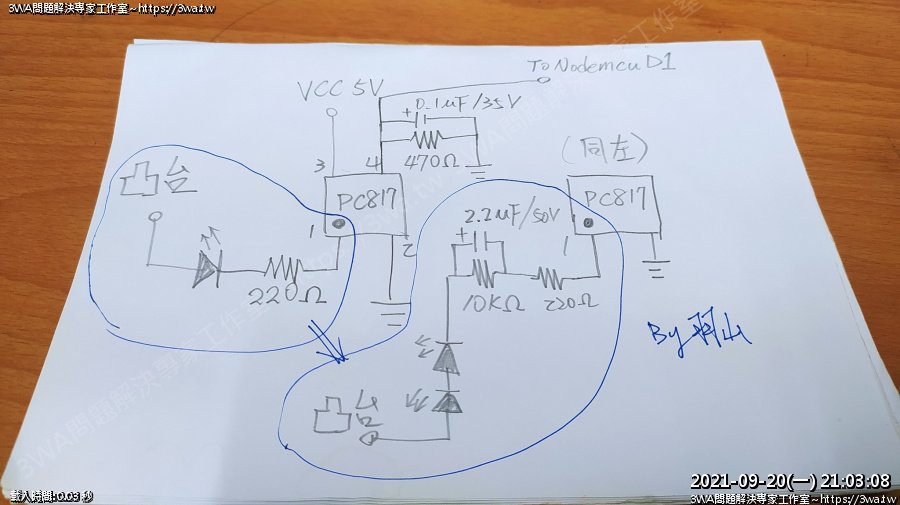 3WA問題解決專家工作室~https://3wa.tw
To Nodemcu D1
VCC 5V
+ 0.1uF/35V
470Ω
3
4
(同左)
凸台
PC817
PC817
1
2
2.2uF/50V
+
1
220Ω
10KΩ
220Ω
By 羽山
凸台
載入時間:0.03 秒
2021-09-20(一) 21:03:08
3WA問題解決專家工作室~https://3wa.tw